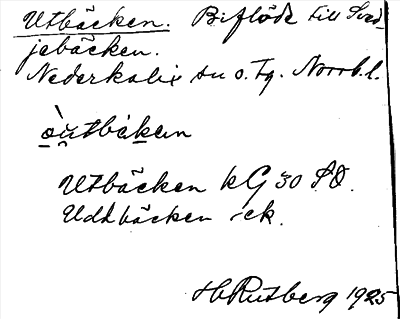 Utbäcken. Biflöde till Sved
jebäcken.
Nederkalix sn o. tg. Norrb. l.
òu̯tbäken
Utbäcken kG 30 SO.
Udtbäcken ek.
HRutberg 1925